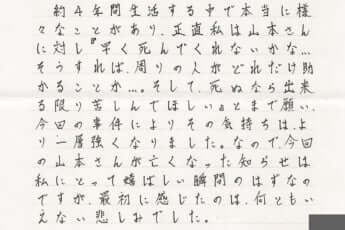 約4年間生活する中で本当に様
々なことがあり、正直私は山本さん
に対し『早く死んでくれないかな…
そうすれば、周りの人がどれだけ助
かることか…。そして、死ぬなら出来
る限り苦しんでほしい』とまで願い、
今回の事件によりその気持ちは、よ
り一層強くなりました。なので、今回
の山本さんが亡くなった知らせは
私にとって嬉ばしい瞬間のはずなの
ですが、最初に感じたのは、何ともい
えない悲しみでした。